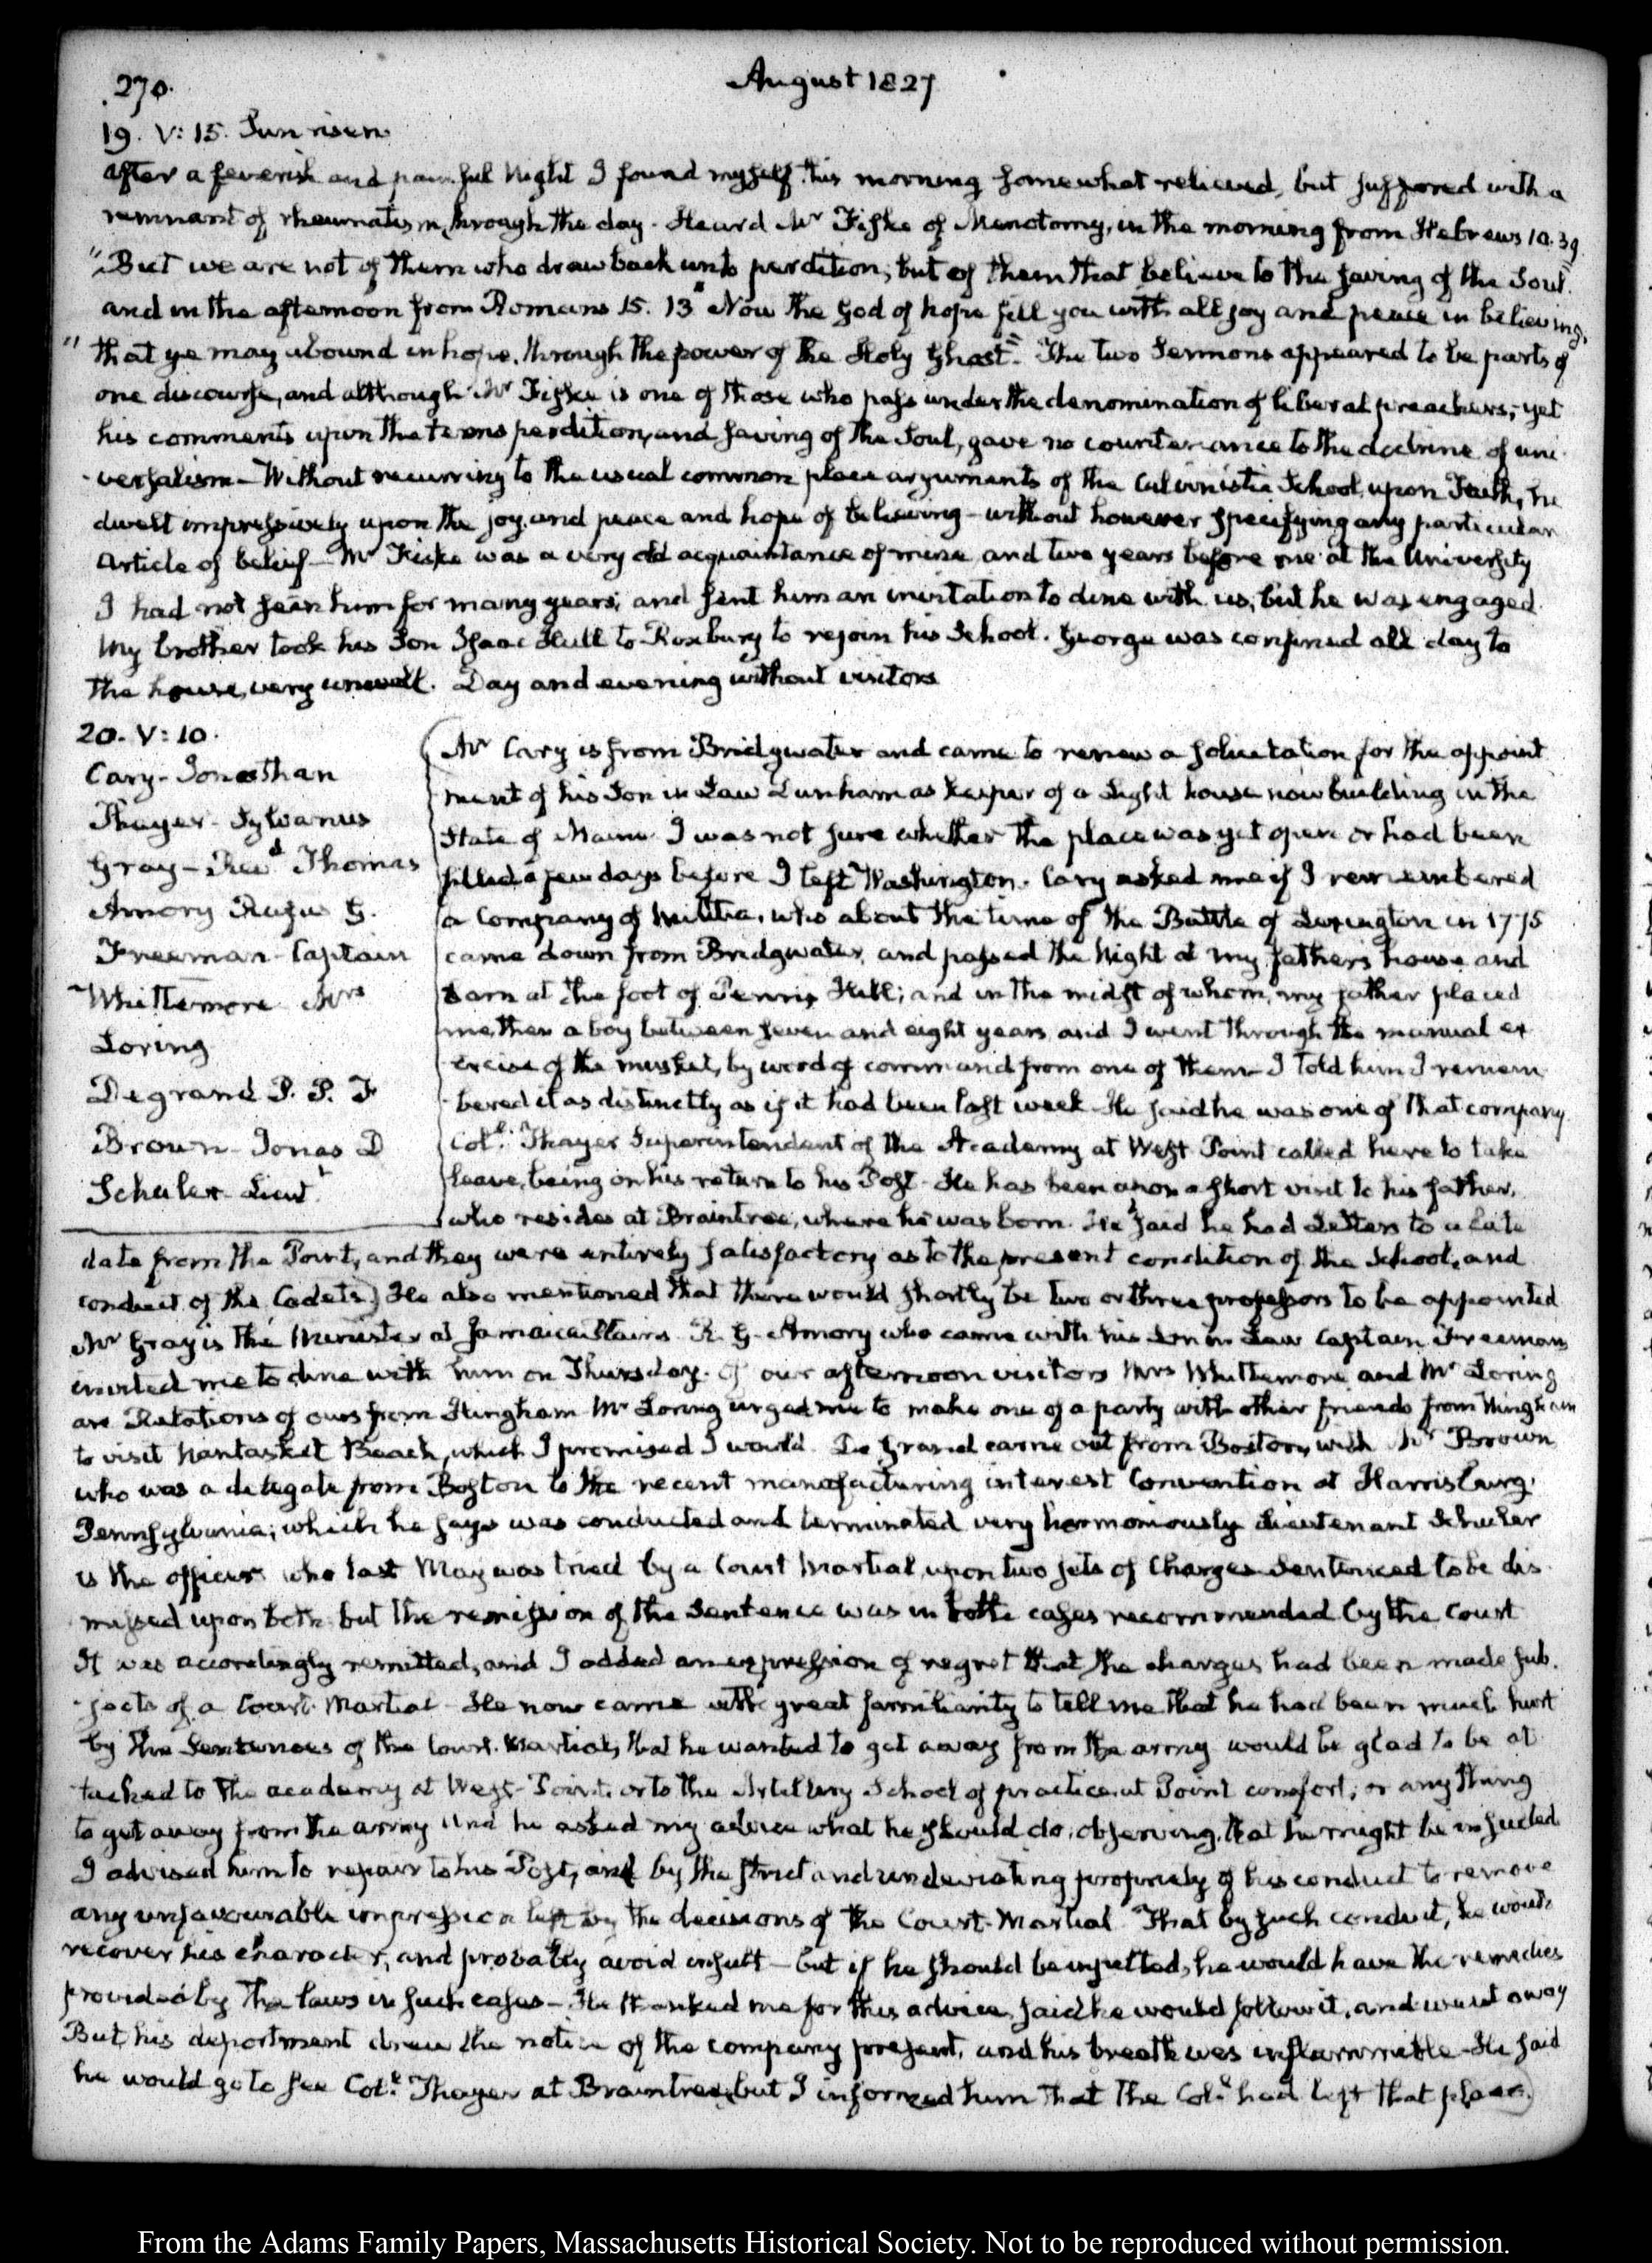 270.
August 1827
19. V: 15. Sun risen
After a feverish and painful Night I found myself this morning somewhat relieved, but suffered with a
remnant of rheumatism, through the day. Heard Mr Fiske of Menotomy, in the morning from Hebrews 10. 39
"But we are not of them who draw back unto perdition, but of them that believe to the saving of the Soul"
and in the afternoon from Romans 15. 13 "Now the God of hope fill you with all joy and peace in believing,
"that ye may abound in hope, through the power of the Holy Ghost." The two Sermons appeared to be parts of
one discourse, and although Mr Fiske is one of those who pass under the denomination of liberal preachers, yet
his comments upon the terms perdition, and saving of the Soul, gave no countenance to the doctrine of uni-
-versalism— Without recurring to the usual common place arguments of the Calvinistic School, upon Faith, he
dwelt impressively upon the joy and peace and hope of believing— without however specifying any particular
article of belief— Mr Fiske was a very old acquaintance of mine, and two years before me at the University
I had not seen him for many years, and sent him an invitation to dine with us, but he was engaged.
My brother took his Son Isaac Hull to Roxbury to rejoin his School. George was confined all day to
the house, very unwell. Day and evening without visitors
20. V: 10.
Cary- Jonathan
Thayer- Sylvanus
Gray- Revd Thomas
Amory Rufus G.
Freeman- Captain
Whittemore Mrs
Loring
Degrand P. P. F
Brown- Jonas D
Schuler- Lieut
Mr Cary is from Bridgwater and came to renew a solicitation for the appoint
ment of his Son in Law Dunham as keeper of a Light house now building in the
State of Maine. I was not sure whether the place was yet open or had been
filled a few days before I left Washington. Cary asked me if I remembered
a Company of Militia, who about the time of the Battle of Lexington in 1775
came down from Bridgwater, and passed the Night at my father's house and
barn at the foot of Penn's Hill; and in the midst of whom, my father placed
me, then a boy between seven and eight years, and I went through the manual ex
-ercise of the musket, by word of command from one of them— I told him I remem
-bered it as distinctly as if it had been last week— He said he was one of that company.
Coll. Thayer Superintendent of the Academy at West Point called here to take
leave, being on his return to his Post— He has been upon a short visit to his father,
who resides at Braintree, where he was born. He said he had Letters to a late
date from the Point, and they were entirely satisfactory as to the present condition of the School, and
conduct of the Cadets) He also mentioned that there would shortly be two or three professors to be appointed.
Mr Gray is the Minister at Jamaica Plains R. G. Amory who came with his Son in Law Captain Freeman
invited me to dine with him on Thursday. Of our afternoon visitors Mrs Whittemore and Mr Loring
are Relations of ours from Hingham Mr Loring urged me to make one of a party with other friends from Hingham
to visit Nantasket Beach, which I promised I would De Grand came out from Boston, with Mr Brown
who was a delegate from Boston to the recent manufacturing interest Convention at Harrisburg.
Pennsylvania; which he says was conducted and terminated very harmoniously Lieutenant Schuler
is the officer who last May was tried by a Court Martial, upon two sets of Charges Sentenced to be dis-
missed upon both but the remission of the Sentence was in both cases recommended by the Court
It was accordingly remitted, and I added an expression of regret that the charges had been made sub.
-jects of a Court-Martial— He now came with great familiarity to tell me that he had been much hurt
by the Sentences of the Court-Martial, that he wanted to get away from the army would be glad to be at
-tached to the academy at West-Point, or to the Artillery School of practice at Point comfort; or any thing
to get away from the army and he asked my advice what he should do, observing, that he might be insulted
I advised him to repair to his Post, and by the strict and undeviating propriety of his conduct to remove
any unfavourable impression left by the decisions of the Court-Martial. That by such conduct, he would
recover his character, and probably avoid insult— but if he should be insulted, he would have the remedies
provided by the laws in such cases— He thanked me for this advice, said he would follow it, and went away
But his deportment drew the notice of the company present, and his breath was inflammable— He said
he would go to see Coll. Thayer at Braintree, but I informed him that the Coll. had left that place.)
From the Adams Family Papers, Massachusetts Historical Society. Not to be reproduced without permission.